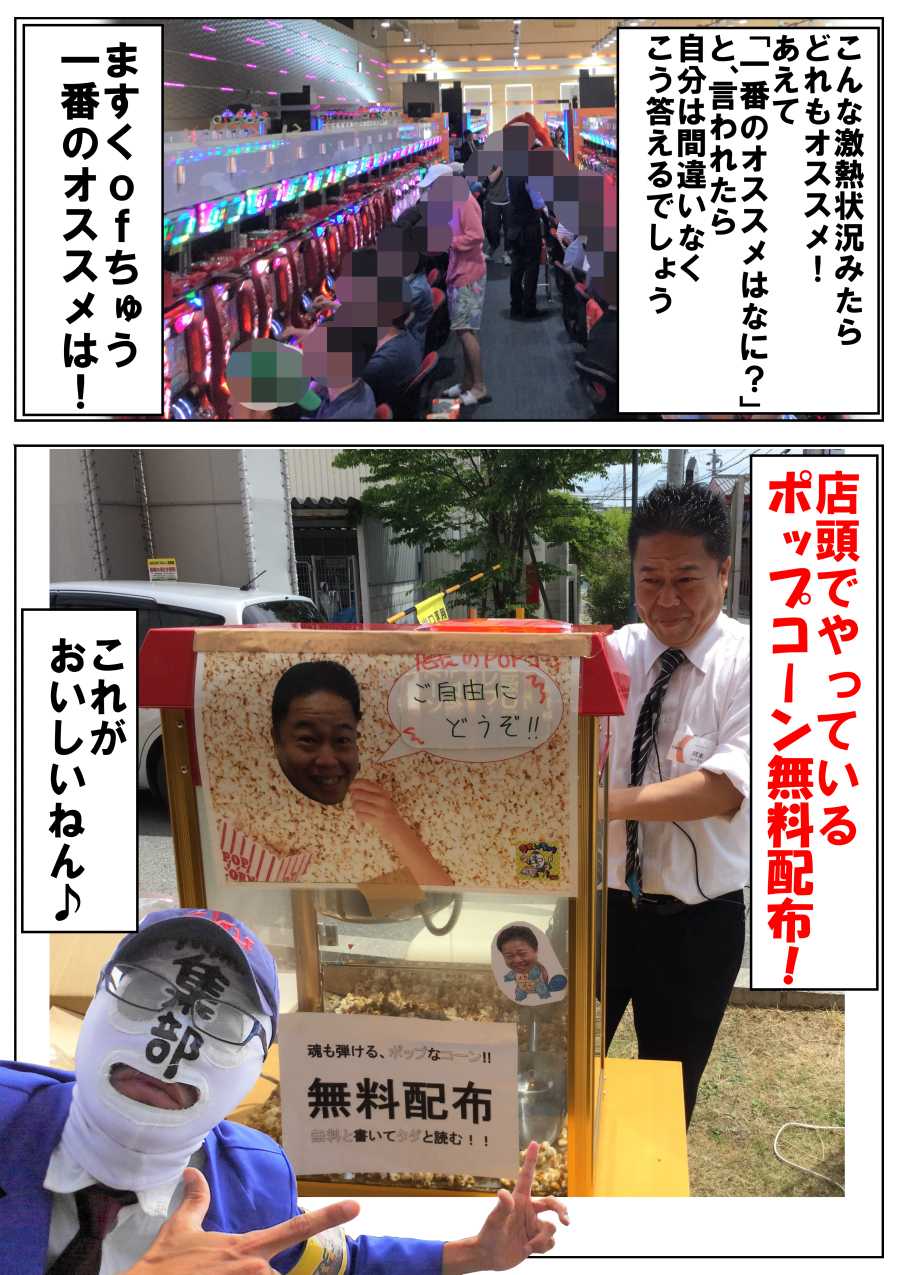 こんな激熱状況みたら
どれもオススメ！
あえて
「一番のオススメはなに？」
と、言われたら
自分は間違いなく
こう答えるでしょう
ますくofちゅう
一番のオススメは！
店頭でやっている
ポップコーン無料配布！
ご自由に
どうぞ!!
POP
CORN
これが
おいしいねん♪
集部
魂も弾ける、ポップなコーン!!
無料配布
無料と書いてタダと読む！！